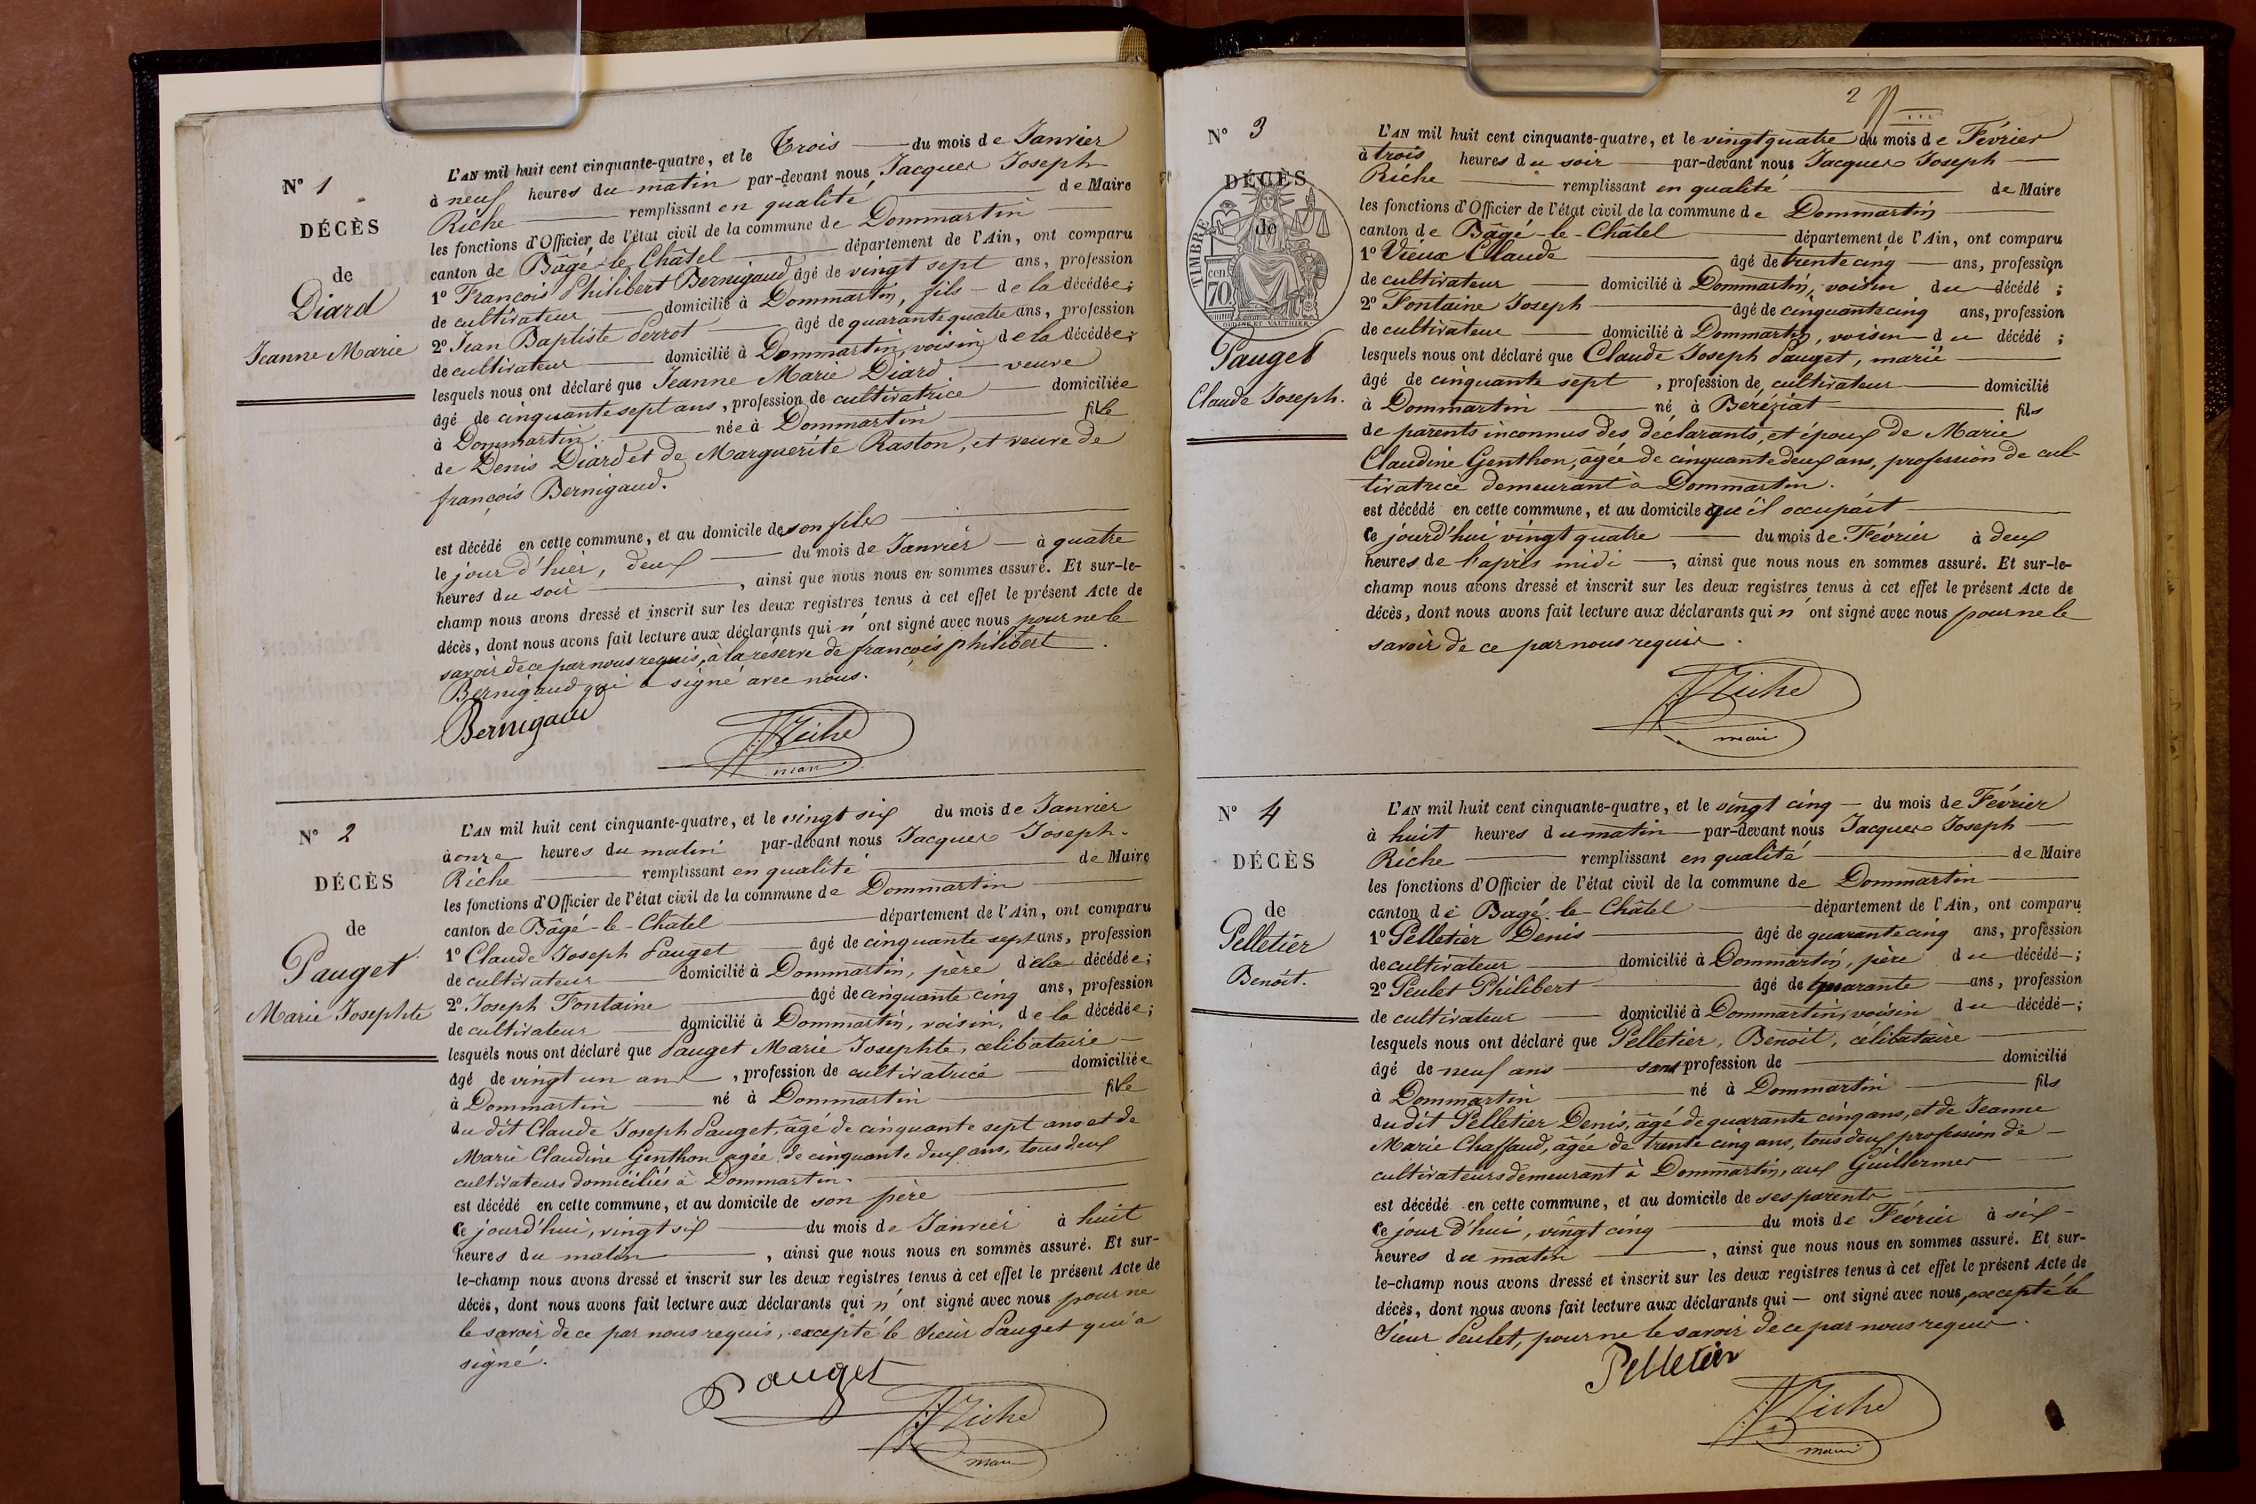 N° 1
DÉCÈS
de
Diard
Jeanne Marie
L'AN mil huit cent cinquante-quatre, et le Trois du mois de Janvier
à neuf heures du matin par-devant nous Jacques Joseph
Riche remplissant en qualité de Maire
les fonctions d'Officier de l'état civil de la commune de Dommartin
canton de Bâgé-le-Châtel département de l'Ain, ont comparu
1° François Philibert Bernigaud âgé de vingt sept ans, profession
de cultivateur domicilié à Dommartin, fils de la décédée;
2° Jean Baptiste Perrot âgé de quarante quatre ans, profession
de cultivateur domicilié à Dommartin, voisin de la décédée;
lesquels nous ont déclaré que Jeanne Marie Diard veuve
âgé de cinquante sept ans, profession de cultivatrice domiciliée
à Dommartin née à Dommartin fille
de Denis Diard et de Marguerite Raston, et veuve de
françois Bernigaud.
est décédé en cette commune, et au domicile de son fils
le jour d'hier, deux du mois de Janvier à quatre
heures du soir, ainsi que nous nous en sommes assuré. Et sur-le-
champ nous avons dressé et inscrit sur les deux registres tenus à cet effet le présent Acte de
décès, dont nous avons fait lecture aux déclarants qui n'ont signé avec nous pour ne le
savoir de ce par nous requis, à la réserve de françois philibert
Bernigaud qui a signé avec nous.
Bernigaud
JJRiche
maire
N° 2
DÉCÈS
de
Pauget
Marie Josephte
L'AN mil huit cent cinquante-quatre, et le vingt six du mois de Janvier
à onze heures du matin par-devant nous Jacques Joseph
Riche remplissant en qualité de Maire
les fonctions d'Officier de l'état civil de la commune de Dommartin
canton de Bâgé-le-Châtel département de l'Ain, ont comparu
1° Claude Joseph Pauget âgé de cinquante sept ans, profession
de cultivateur domicilié à Dommartin, père de la décédée;
2° Joseph Fontaine âgé de cinquante cinq ans, profession
de cultivateur domicilié à Dommartin, voisin, de la décédée;
lesquels nous ont déclaré que Pauget Marie Josephte, célibataire
âgé de vingt un ans, profession de cultivatrice domiciliée
à Dommartin né à Dommartin fille
du dit Claude Joseph Pauget, âgé de cinquante sept ans et de
Marie Claudine Genthon agée de cinquante deux ans, tous deux
cultivateurs domiciliés à Dommartin.
est décédé en cette commune, et au domicile de son père
Ce jourd'hui, vingt six du mois de Janvier à huit
heures du matin, ainsi que nous nous en sommes assuré. Et sur-
le-champ nous avons dressé et inscrit sur les deux registres tenus à cet effet le présent Acte de
décès, dont nous avons fait lecture aux déclarants qui n'ont signé avec nous pour ne
le savoir de ce par nous requis, excepté le Sieur Pauget qui a
signé.
Pauget
JJRiche
maire
2
N° 3
DÉCÈS
de
TIMBRE
cen
70
OUDINÉ ET VAUTHIER
Pauget
Claude Joseph.
L'AN mil huit cent cinquante-quatre, et le vingt quatre du mois de Février
à trois heures du soir par-devant nous Jacques Joseph
Riche remplissant en qualité de Maire
les fonctions d'Officier de l'état civil de la commune de Dommartin
canton de Bâgé-le-Châtel département de l'Ain, ont comparu
1° Vieux Claude âgé de trente cinq ans, profession
de cultivateur domicilié à Dommartin, voisin du décédé;
2° Fontaine Joseph âgé de cinquante cinq ans, profession
de cultivateur domicilié à Dommartin, voisin du décédé;
lesquels nous ont déclaré que Claude Joseph Pauget, marié
âgé de cinquante sept, profession de cultivateur domicilié
à Dommartin né à Béréziat fils
de parents inconnus des déclarants, et époux de Marie
Claudine Genthon, âgée de cinquante deux ans, profession de cul-
tivatrice demeurant à Dommartin.
est décédé en cette commune, et au domicile qu'il occupait
Ce jourd'hui vingt quatre du mois de Février à deux
heures de l'après midi, ainsi que nous nous en sommes assuré. Et sur-le-
champ nous avons dressé et inscrit sur les deux registres tenus à cet effet le présent Acte de
décès, dont nous avons fait lecture aux déclarants qui n'ont signé avec nous pour ne le
savoir de ce par nous requis.
JJRiche
maire
N° 4
DÉCÈS
de
Pelletier
Benoit.
L'AN mil huit cent cinquante-quatre, et le vingt cinq du mois de Février
à huit heures du matin par-devant nous Jacques Joseph
Riche remplissant en qualité de Maire
les fonctions d'Officier de l'état civil de la commune de Dommartin
canton de Bagé-le-Châtel département de l'Ain, ont comparu
1° Pelletier Denis âgé de quarante cinq ans, profession
de cultivateur domicilié à Dommartin, père du décédé;
2° Peulet Philibert âgé de quarante ans, profession
de cultivateur domicilié à Dommartin, voisin du décédé;
lesquels nous ont déclaré que Pelletier, Benoit, célibataire
âgé de neuf ans sans profession de domicilié
à Dommartin né à Dommartin fils
du dit Pelletier Denis, âgé de quarante cinq ans, et de Jeanne
Marie Chaffaud, âgée de trente cinq ans, tous deux profession de
cultivateurs demeurant à Dommartin, aux Guillermes
est décédé en cette commune, et au domicile de ses parents
Ce jour d'hui, vingt cinq du mois de Février à six
heures du matin, ainsi que nous nous en sommes assuré. Et sur-
le-champ nous avons dressé et inscrit sur les deux registres tenus à cet effet le présent Acte de
décès, dont nous avons fait lecture aux déclarants qui ont signé avec nous, excepté le
Sieur Peulet, pour ne le savoir de ce par nous requis.
Pelletier
JJRiche
maire